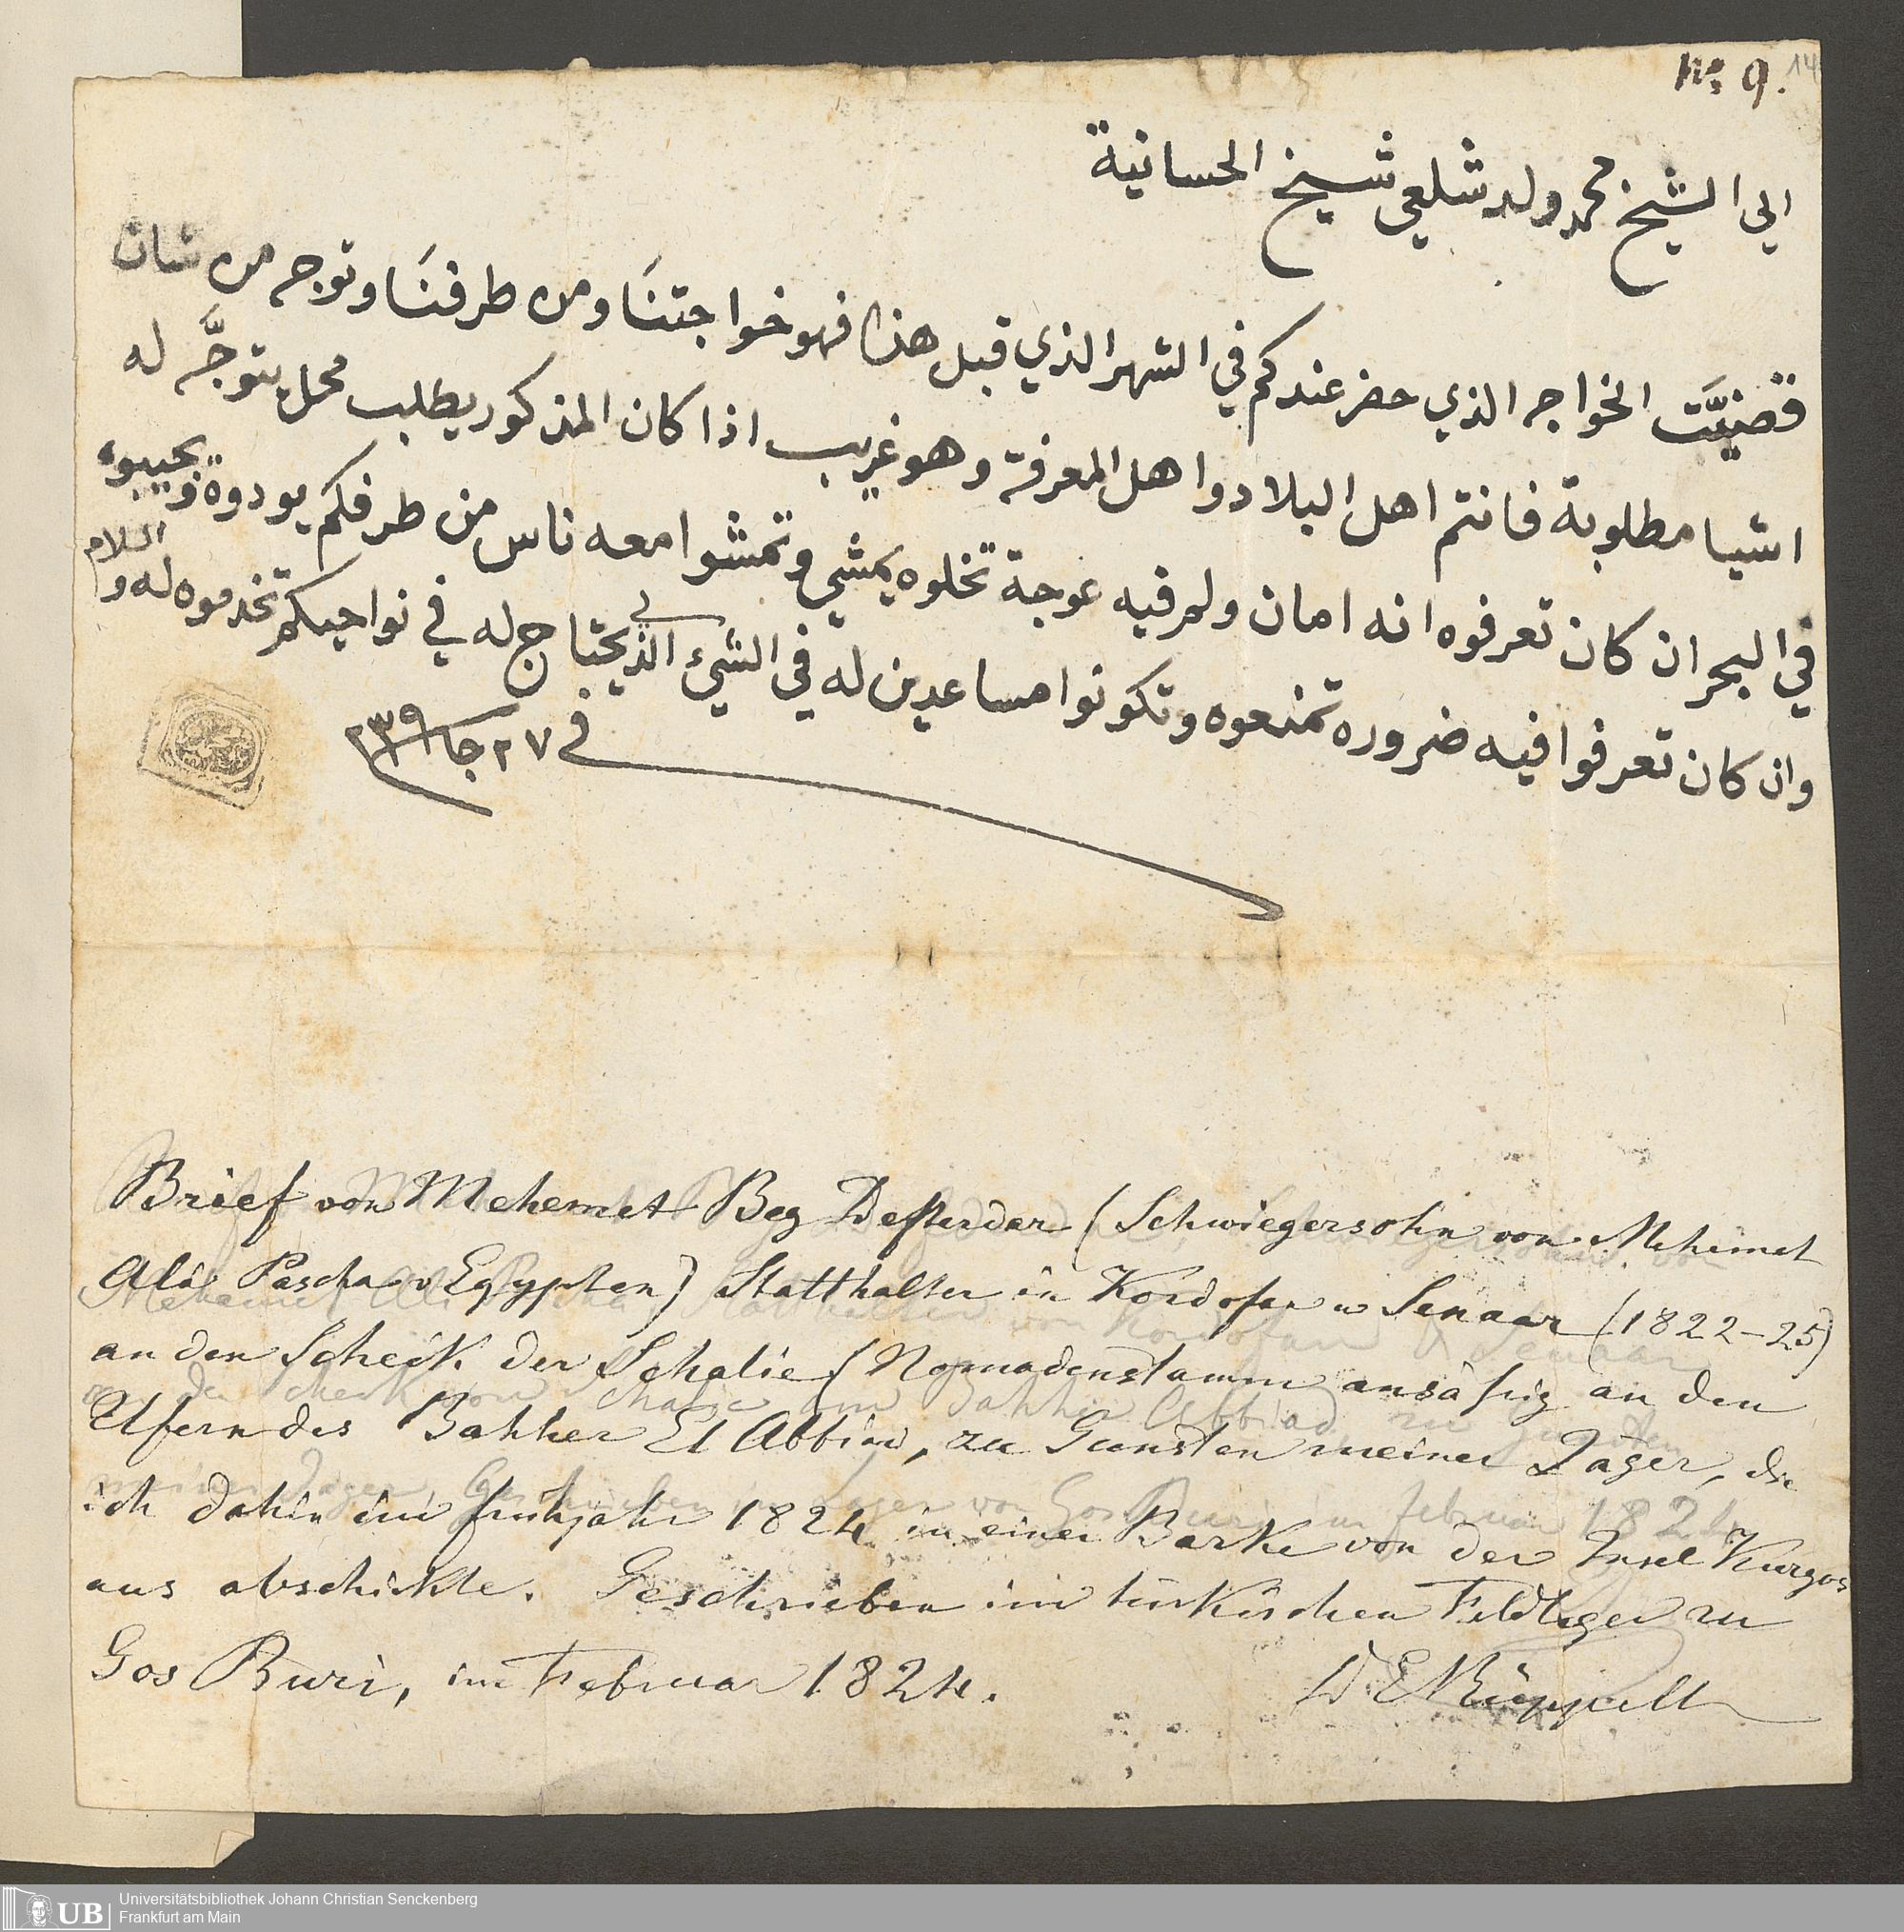 No: 9.
14
الي الشيخ محمد ولد شلعي شيخ الحسانية
قضيَّت الخواجه الذي حضر عندكم في الشهر الذي قبل هذا فهو خواجتنَا ومن طرفنَا وتوجه من شان
اشيا مطلوبة فانتم اهل البلاد واهل المعرفة وهو غريب اذا كان المذكور يطلب محل يتوجَّه له
في البحر ان كان تعرفوه انه امان ولم فيه عوجة تخلوه يمشي وتمشوا معه ناس من طرفكم يودوه ويجيبوه
وان كان تعرفوا فيه ضروره تمنعوه وتكونوا مساعدين له في الشيء الذي يحتاج له في نواحيكم تخدموه له والسلام
في ٢٧ جا ٢٣٩
Brief von Mehemet Beg Defterdar (Schwiegersohn von Mehemet
Ali Pascha v Egypten) Statthalter in Kordofan u Senaar (1822–25)
an den Scheik der Schalie (Nomadenstamm ansäßig an den
Ufern des Bahher El Abbiad, zu Gunsten meiner Jäger, die
ich dahin im frühjahr 1824 in einer Barke von der Insel Kurgos
aus abschickte. Geschrieben im türkischen Feldlager zu
Gos Buri, im Februar 1824. D E Rüppell
UB Universitätsbibliothek Johann Christian Senckenberg
Frankfurt am Main